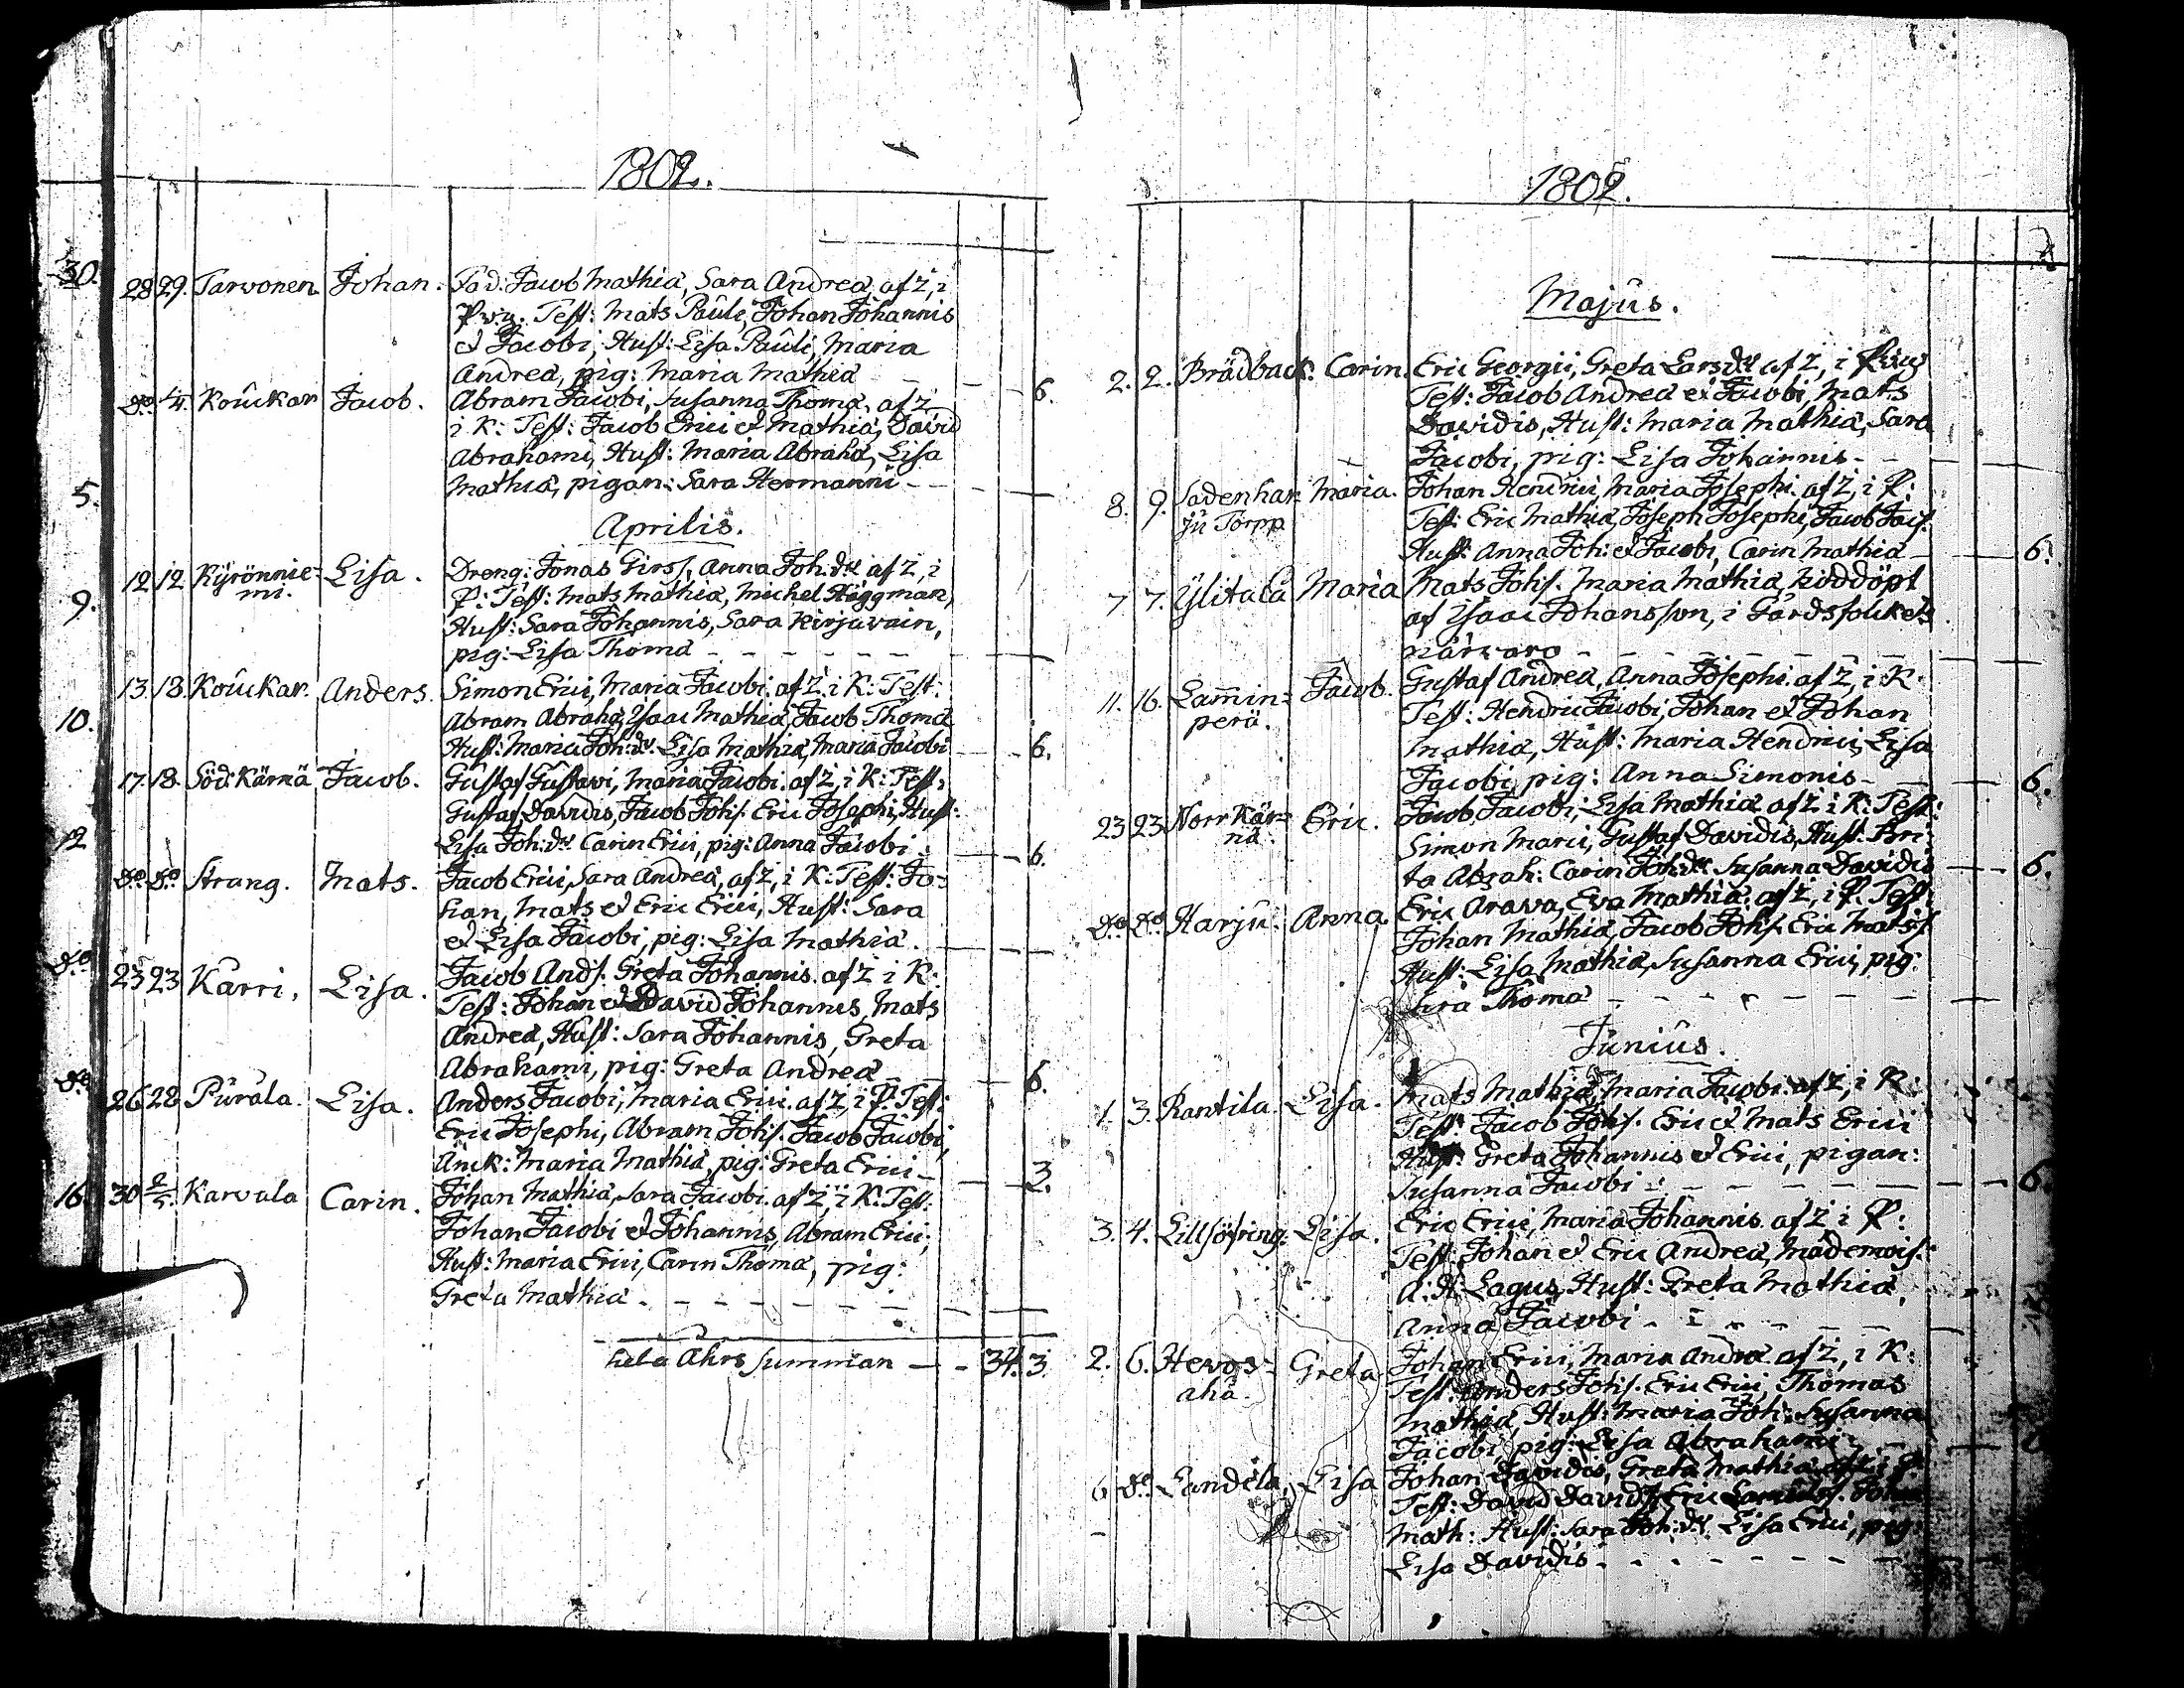 1802.
30.
28 29. Tarvonen. Johan. Fad: Jacob Mathiæ, Sara Andreæ af Z, i
P. v. g. Test: Mats Pauli, Johan Johannis
et Jacobi, Hust: Lisa Pauli, Maria
Andreæ, pig: Maria Mathiæ - - - 6.
Do 4/4. Kouckar Jacob. Abram Jacobi, Susanna Thomæ. af Z
i K: Test: Jacob Erici et Mathiæ, David
Abrahami, Hust: Maria Abrahæ, Lisa
5. Mathiæ, pigan: Sara Hermanni - - -
Aprilis.
12 12 Kyrönnie= Lisa. Dreng: Jonas Girss, Anna Joh:dr af Z, i
9. mi. P: Test: Mats Mathiæ, Michel Häggman,
Hust: Sara Johannis, Sara Kirjavain,
pig: Lisa Thomæ - - - - - -
13. 18. Kouckar. Anders. Simon Erici, Maria Jacobi. af Z. i K: Test:
10. Abram Abrahæ, Isaac Mathiæ, Jacob Thomæ
Hust: Maria Joh:dr. Lisa Mathiæ, Maria Jacobi - - 6.
17. 18. Söd: Kärnä Jacob. Gustaf Gustavi, Maria Jacobi. af Z, i K: Test:
Gustaf Davidis, Jacob Johs. Eric Josephi, Hust:
12 Lisa Joh:dr. Carin Erici, pig: Anna Jacobi - - 6.
Do Do Strang. Mats. Jacob Erici, Sara Andreæ, af Z, i K: Test: Jo=
han, Mats et Eric Erici, Hust: Sara
et Lisa Jacobi, pig: Lisa Mathiæ. - -
Do 23 23 Karri, Lisa. Jacob Ands. Greta Johannis. af Z i K:
Test: Johan et David Johannis, Mats
Andreæ, Hust: Sara Johannis, Greta
Abrahami, pig: Greta Andreæ - - 6.
Do 26 28 Purala. Lisa. Anders Jacobi, Maria Erici. af Z, i P. Test:
Eric Josephi, Abram Johs. Jacob Jacobi,
Änck: Maria Mathiæ, pig: Greta Erici - - 3.
16. 30 2/5. Karvala Carin. Johan Mathiæ, Sara Jacobi. af Z, i K: Test:
Johan Jacobi et Johannis, Abram Erici,
Hust: Maria Erici, Carin Thomæ, pig:
Greta Mathiæ - - - - - - -
hela Åhrs summan - - 34. 3.
1802.
Majus.
2. 2. Brädback. Carin. Eric Georgii, Greta Larsdr af Z, i
Test: Jacob Andreæ et Jacobi, Mats
Davidis, Hust: Maria Mathiæ, Sara
Jacobi, pig: Lisa Johannis - -
8. 9. Sadenhar= Maria. Johan Henrici, Maria Josephi. af Z, i P:
ju Torpp Test: Eric Mathiæ, Joseph Josephi, Jacob Jacs.
Hust: Anna Joh: et Jacobi, Carin Mathiæ - - 6.
7 7. Ylitalo Maria Mats Johs. Maria Mathiæ, nöddöpt
af Isaac Johansson, i Gårdsfolkets
närvaro - - - - - -
11. 16. Lamin= Jacob. Gustaf Andreæ, Anna Josephi. af Z, i K.
perä. Test: Hendric Jacobi, Johan et Johan
Mathiæ, Hust: Maria Hendrici, Lisa
Jacobi, pig: Anna Simonis - - 6.
23 23 Norr Kär= Eric. Jacob Jacobi, Lisa Mathiæ af Z. i K: Test:
nä. Simon Marci, Gustaf Davidis, Hust: Bri=
ta Abrah: Carin Joh:dr. Susanna Davidis - - 6.
Do Do Harju. Anna. Eric Arava, Eva Mathiæ. af Z, i P. Test:
Johan Mathiæ, Jacob Johs. Eric Matss.
Hust: Lisa Mathiæ, Susanna Erici, pig:
Thomæ - - - - - -
Junius.
1. 3. Rantila. Lisa. Mats Mathiæ, Maria Jacobi. af Z, i K:
Test: Jacob Johs. Eric et Mats Erici
Hust: Greta Johannis et Erici, pigan:
Susanna Jacobi - - - - - 6.
3. 4. Lillsöfring: Lisa. Eric Erici, Maria Johannis. af Z i P:
Test: Johan et Eric Andreæ, Mademois:
A: H: Lagus, Hust: Greta Mathiæ,
Anna Jacobi - - - - -
2. 6. Hevos= Greta Johan Erici, Maria Andreæ. af Z, i K:
aha. Test: Anders Johs. Eric Erici, Thomas
Mathiæ, Hust: Maria Joh: Susanna
Jacobi, pig: Lisa Abrahami - -
6 Do Landela, Lisa Johan Davidis, Greta Mathiæ af Z i P
Test: David Davids. Eric Johan
Math: Hust: Sara Joh:dr. Lisa Erici, pig:
Lisa Davidis - - - - - -